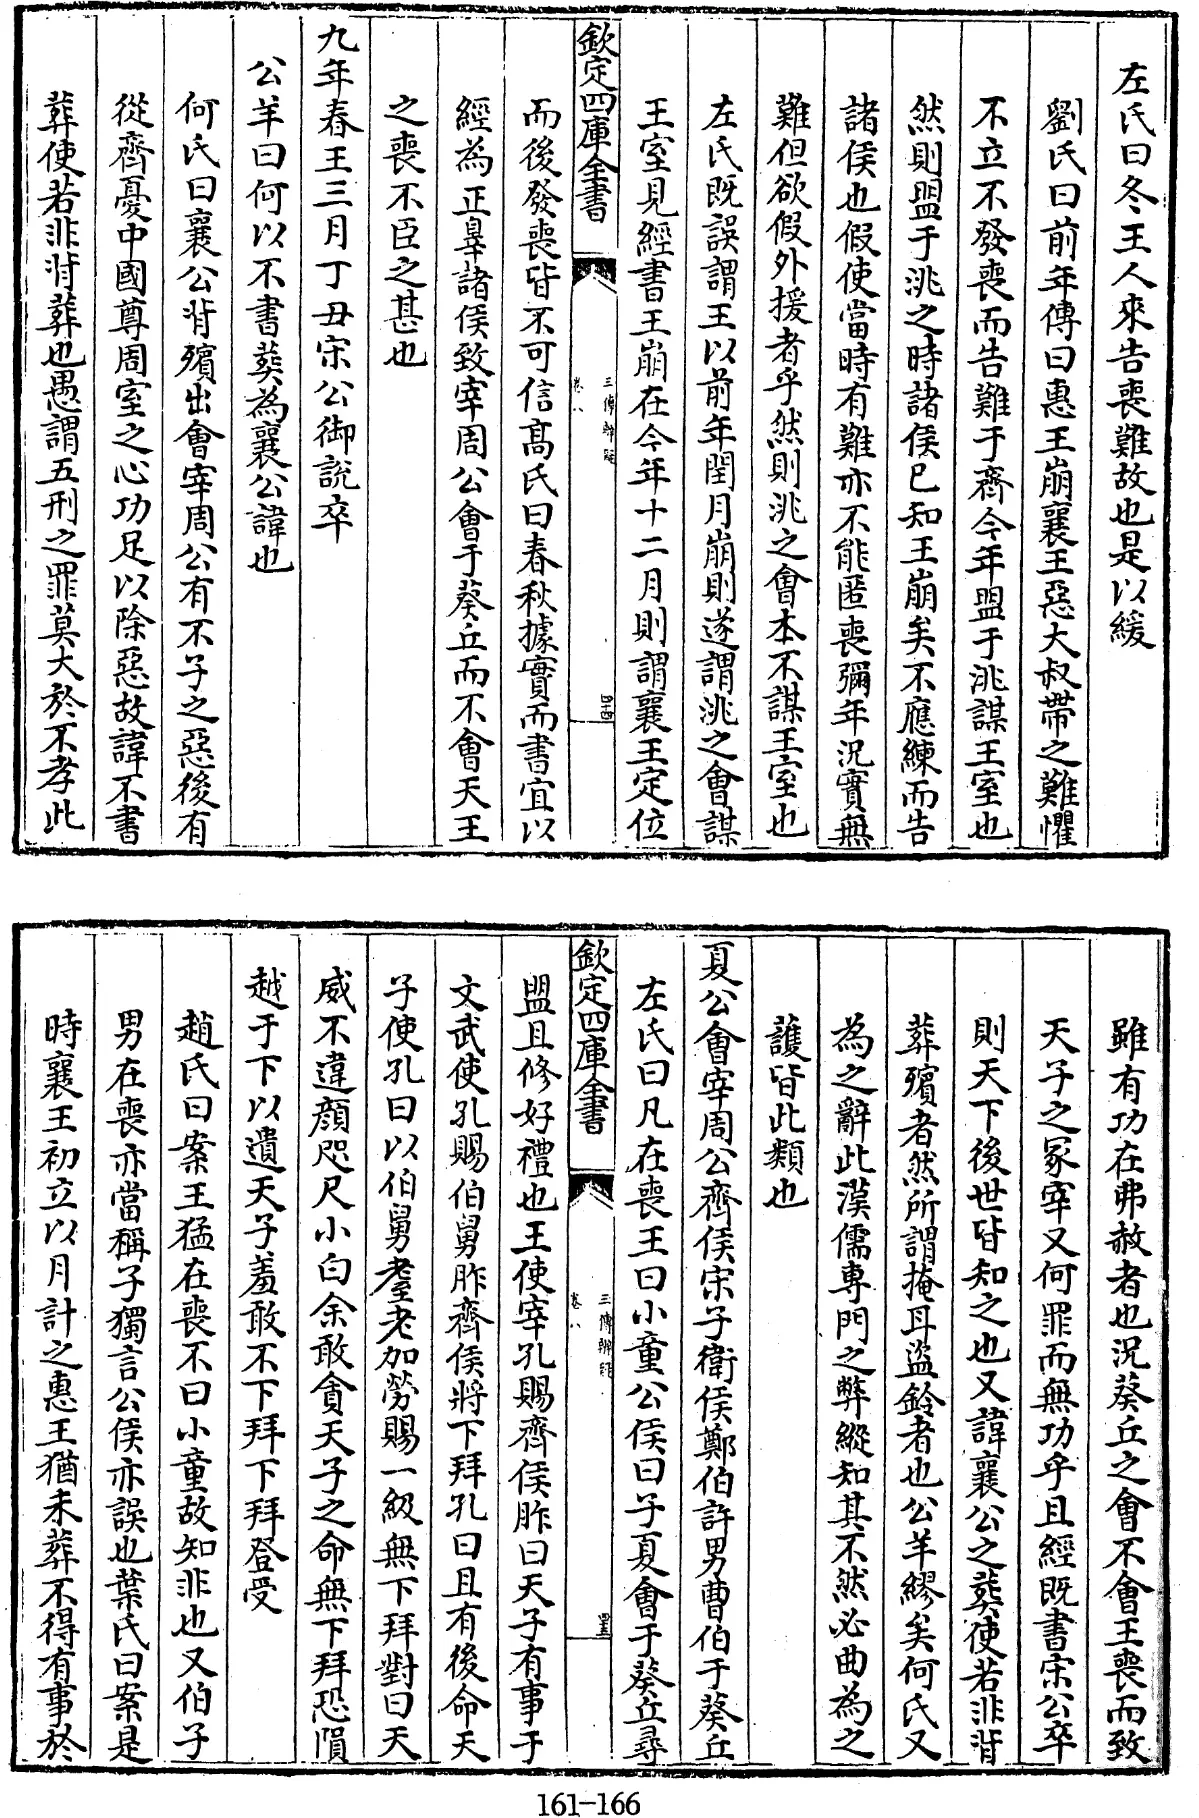 左氏曰冬王人來告喪難故也是以緩
劉氏曰前年傳曰惠王崩襄王惡大叔帶之難懼
不立不發喪而告難于齊今年盟于洮謀王室也
然則盟于洮之時諸侯已知王崩矣不應練而告
諸侯也假使當時有難亦不能匿喪彌年況實無
難但欲假外援者乎然則洮之會本不謀王室也
左氏既誤謂王以前年閏月崩則遂謂洮之會謀
王室見經書王崩在今年十二月則謂襄王定位
欽定四庫全書
三傳辨疑
卷八
四十四
而後發喪皆不可信髙氏曰春秋據實而書宜以
經為正辠諸侯致宰周公會于葵丘而不會天王
之喪不臣之甚也
九年春王三月丁丑宋公御說卒
公羊曰何以不書葬為襄公諱也
何氏曰襄公背殯出會宰周公有不子之惡後有
從齊憂中國尊周室之心功足以除惡故諱不書
葬使若非背葬也愚謂五刑之罪莫大於不孝此
雖有功在弗赦者也況葵丘之會不會王喪而致
天子之冢宰又何罪而無功乎且經既書宋公卒
則天下後世皆知之也又諱襄公之葬使若非背
葬殯者然所謂掩耳盜鈴者也公羊繆矣何氏又
為之辭此漢儒專門之弊縱知其不然必曲為之
護皆此類也
夏公會宰周公齊侯宋子衛侯鄭伯許男曹伯于葵丘
左氏曰凡在喪王曰小童公侯曰子夏會于葵丘尋
欽定四庫全書
三傳辨疑
卷八
四十五
盟且修好禮也王使宰孔賜齊侯胙曰天子有事于
文武使孔賜伯舅胙齊侯將下拜孔曰且有後命天
子使孔曰以伯舅耋老加勞賜一級無下拜對曰天
威不違顔咫尺小白余敢貪天子之命無下拜恐隕
越于下以遺天子羞敢不下拜下拜登受
趙氏曰案王猛在喪不曰小童故知非也又伯子
男在喪亦當稱子獨言公侯亦誤也葉氏曰案是
時襄王初立以月計之惠王猶未葬不得有事於
161-166